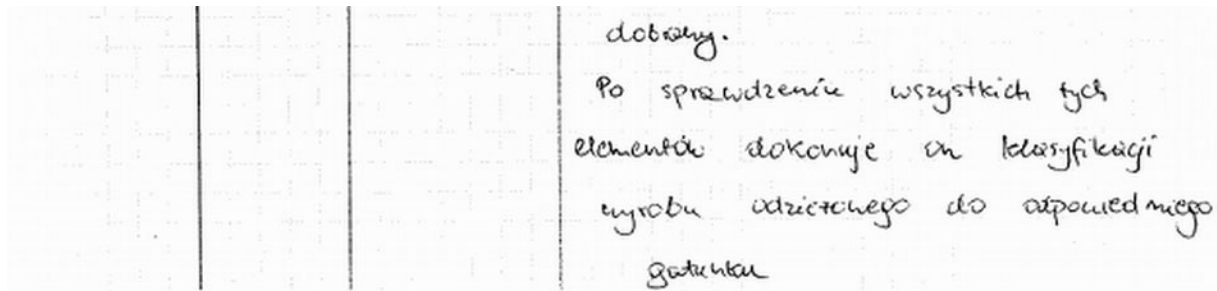 dobrany.
Po sprawdzeniu wszystkich tych
elementów dokonuje on klasyfikacji
wyrobu odzieżowego do odpowiedniego
gatunku